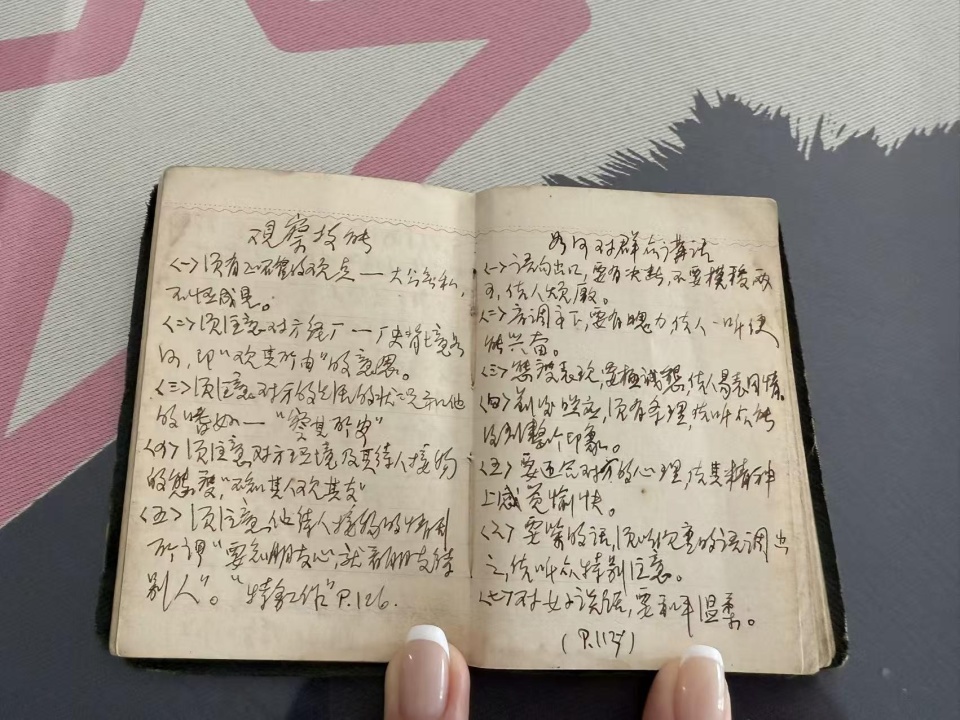 观察技能
<一>须有正确的观点——大公无私,
不怪成見。
<二>须注意对方经厂——厂史背境如
何,即"观其所由"的意思。
<三>须注意对方的生活的状况和他
的嗜好——"察其所安"
<四>须注意对方环境及其待人接物
的態度,"不知其人观其友"
<五>须注意他待人接物的情形
所谓"要知朋友心,就看朋友待
别人"。"特务工作"P.126.
如何对群众讲话
<一>语句出口,要有决断,不要模稜两
可,使人烦厭。
<二>音调高下,要有魄力使人一听便
能兴奋。
<三>態度表现,要極诚懇,使人易表同情。
<四>前後照应,须有条理,使听众能
得到整个印象。
<五>要迎合对方的心理,使其精神
上感觉愉快。
<六>要紧的话,须以沉重的语调出
之,使听众特别注意。
<七>对女子谈话,要和平温柔。
(P.112)